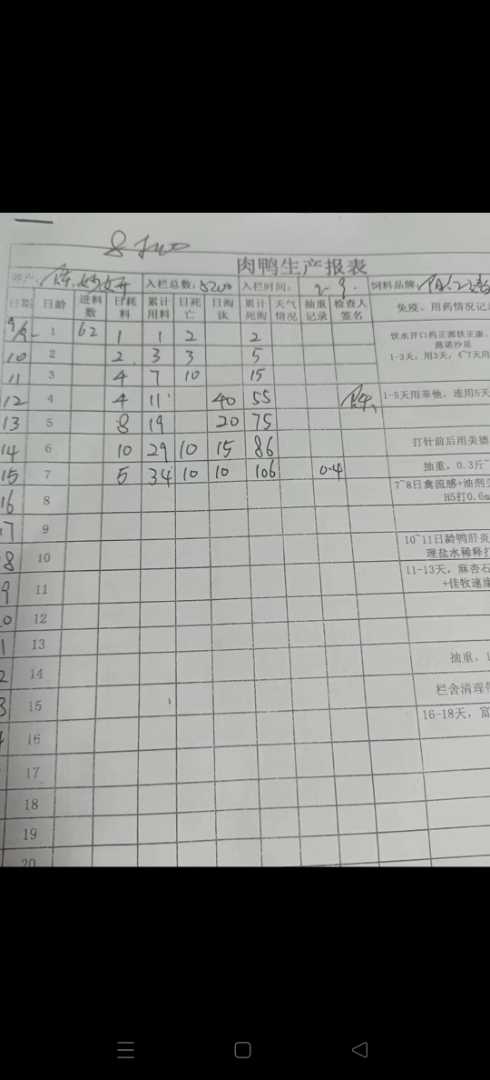 肉鸭生产报表
入栏总数: 5200 入栏时间: 2-9. 饲料品牌:
日期 日龄 进料数 日耗料 累计用料 日死亡 日淘汰 累计死淘 天气情况 抽重记录 检查人签名 免疫、用药情况记
1 62 1 1 2 2
1-3天，用3天，4~7天用
10 2 2 3 3 5
11 3 4 7 10 15
12 4 4 11 40 55 1-5天用 连用5天
13 5 8 19 20 75
14 6 10 29 10 15 86 打针前后用
15 7 5 34 10 10 106 0.4 抽重，0.3斤~
16 8 7~8日禽流感+油剂
H5打0.6m
7 9
8 10 10~11日龄鸭肝炎
理盐水稀释打
9 11 11-13天，麻杏石
+佳牧速康
0 12
1 13
2 14 抽重，1
3 15 栏舍清理
16 16-18天，富
17
18
19
20